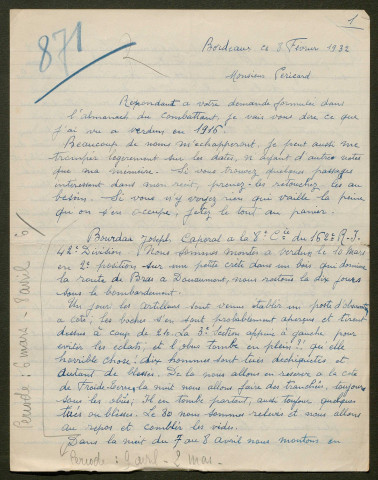 1
871
Bordeaux ce 8 Février 1932
Monsieur Pericard
Repondant a votre demande formulee dans
l'almanach du combattant, je vais vous dire ce que
j'ai vu a verdun en 1916.
Beaucoup de noms m'echapperont. Je peut aussi me
tromper legerement sur les dates, n'ayant d'autres notes
que ma memoire. Si vous trouvez quelques passages
interessant dans mon recit, prenez-les retouchez les au
besoin. Si vous n'y voyez rien qui vaille la peine
qu'on s'en occupe, jetez le tout au panier.
Bourdax Joseph, Caporal a la 8e Cie du 162e R.I.
42e Division. Nous sommes montes a verdun le 10 Mars
en 2e position sur une petite crete dans un bois qui domine
la route de Bras a Douaumont, nous restons la dix jours
sous le bombardement.
Un jour les artilleurs sont venus etablir un poste d'observat
a coté; les boches s'en sont probablement aperçus et tirent
dessus a coup de 210. La 3e Section appuie a gauche pour
eviter les eclats; et l'obus tombe en plein!! quelle
horrible chose: dix hommes sont tués dechiquetés et
autant de blesses. De la nous allons en reserve a la cote
de Froide-terre; la nuit nous allons faire des tranchées, toujours
sous les obus; Il en tombe partout, aussi toujours quelques
tués ou blesses. Le 30 nous sommes relevés et nous allons
au repos et combler les vides.
Dans la nuit du 7 au 8 avril nous montons en
Periode: 6 mars - 8 avril
Periode: 9 avril - 2 mai